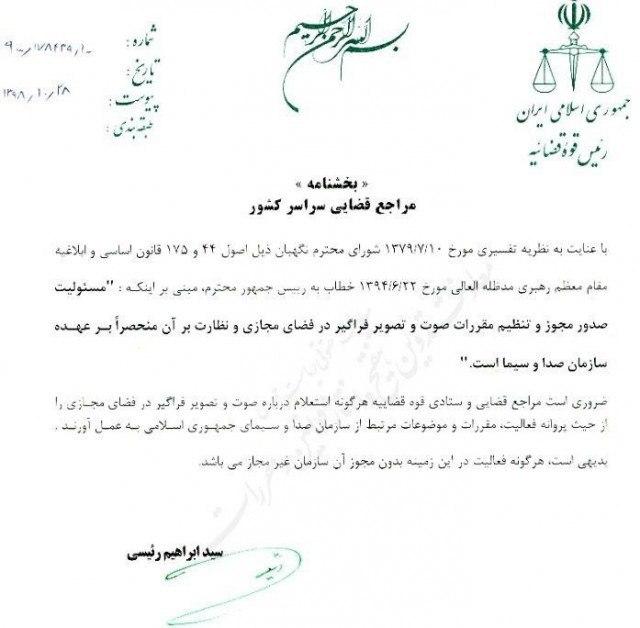 بسم الله الرحمن الرحیم
جمهوری اسلامی ایران
رئیس قوه قضائیه
شماره :
تاریخ : ۱۳۹۸/۱۰/۲۸
پیوست :
طبقه بندی :
« بخشنامه »
مراجع قضایی سراسر کشور
با عنایت به نظریه تفسیری مورخ ۱۳۷۹/۷/۱۰ شورای محترم نگهبان ذیل اصول ۴۴ و ۱۷۵ قانون اساسی و ابلاغیه
مقام معظم رهبری مدظله العالی مورخ ۱۳۹۴/۶/۲۲ خطاب به رییس جمهور محترم، مبنی بر اینکه : "مسئولیت
صدور مجوز و تنظیم مقررات صوت و تصویر فراگیر در فضای مجازی و نظارت بر آن منحصراً بر عهده
سازمان صدا و سیما است."
ضروری است مراجع قضایی و ستادی قوه قضاییه هرگونه استعلام درباره صوت و تصویر فراگیر در فضای مجازی را
از حیث پروانه فعالیت، مقررات و موضوعات مرتبط از سازمان صدا و سیمای جمهوری اسلامی به عمل آورند .
بدیهی است، هرگونه فعالیت در این زمینه بدون مجوز آن سازمان غیر مجاز می باشد.
سید ابراهیم رئیسی